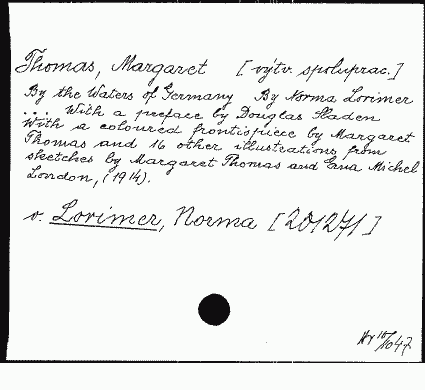 Thomas, Margaret [výtv. spoluprac.]
By the Waters of Germany By Norma Lorimer
... With a preface by Douglas Sladen
With a coloured frontispiece by Margaret
Thomas and 16 other illustrations from
sketches by Margaret Thomas and Erna Michel
London, (1914).
v. Lorimer, Norma [201271]